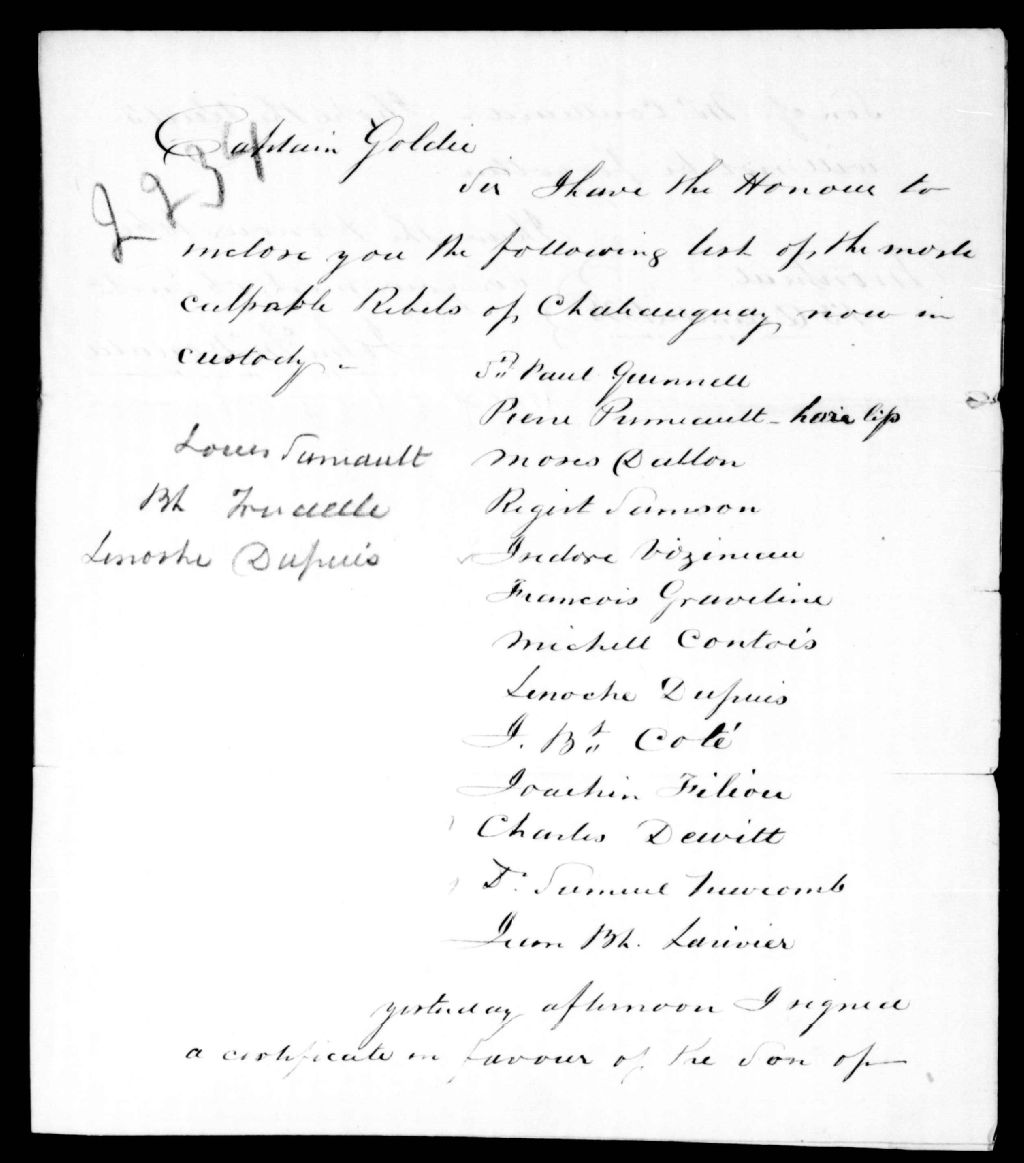 Captain Goldie
2234
Sir I have the Honour to
inclose you the following list of the most
culpable Rebels of Chateauguay now in
custody -
Paul Guinnell
Pierre Primeault - hare lip
Moses Dalton
Regist Samson
Isidore Vizineau
Francois Graveline
Michell Contois
Lenoche Dupuis
J. Bt. Coté
Joachin Filiou
Charles Dewitt
Dr. Samuel Newcomb
Jean Bt. Larivier
Louis Turneault
Bt Trudelle
Lenoche Dupuis
yesterday afternoon I signed
a certificate in favour of the Son of